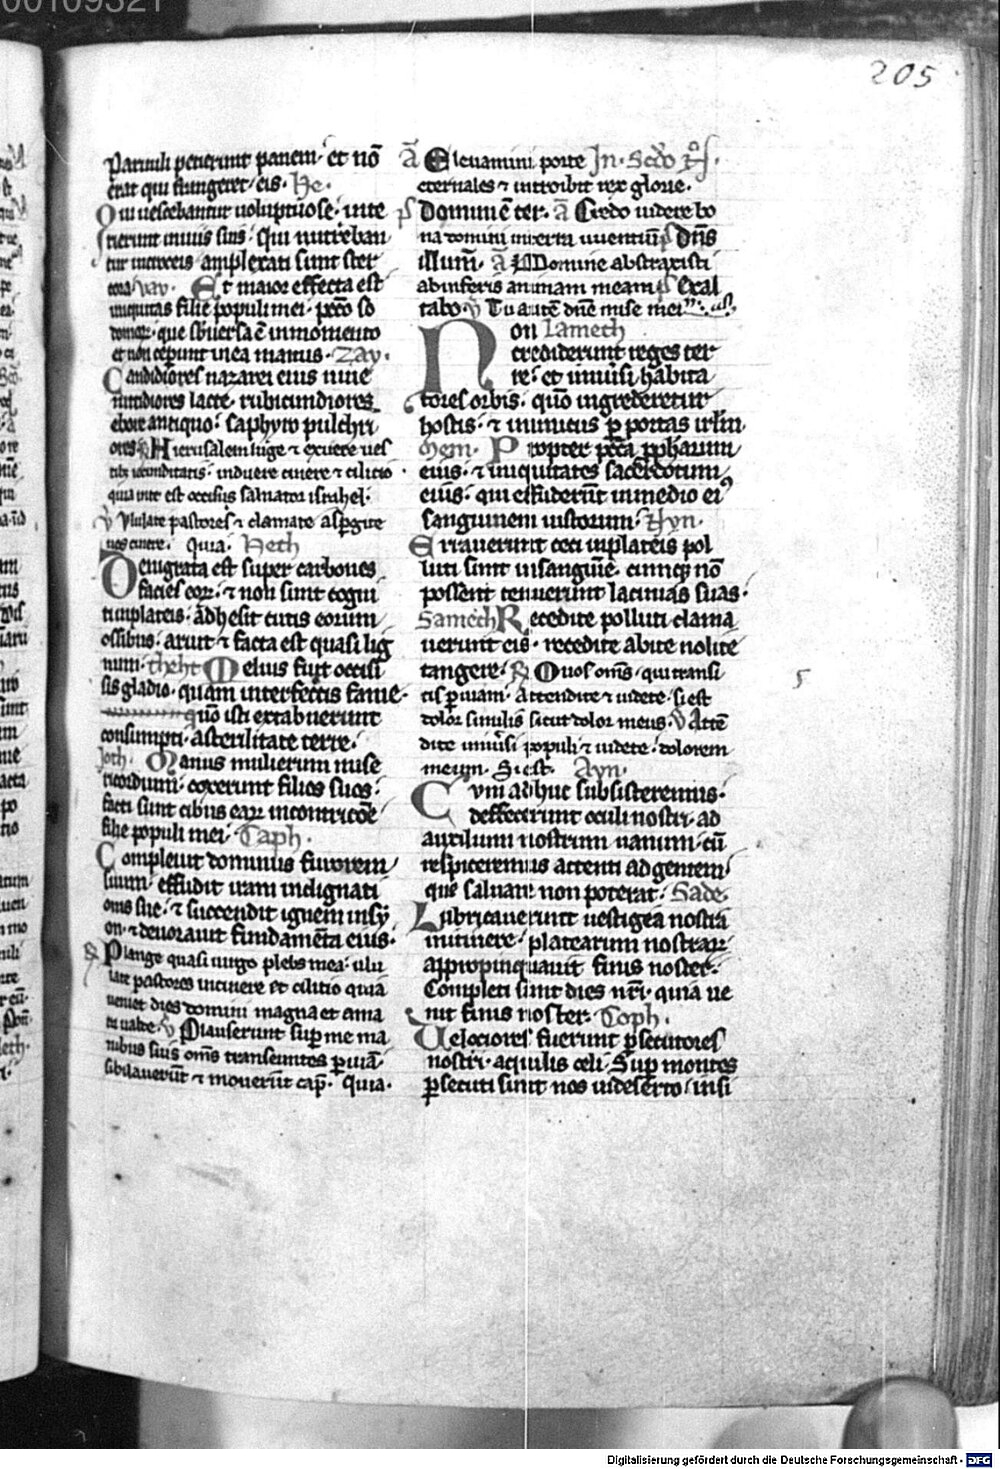 205
Paruuli petierunt panem· et nō
erat qui frangeret eis· He·
Qui uescebantur uoluptuose· inte
rierunt in uiis suis· Qui nutrieban
tur in croceis amplexati sunt ster
cora· vav· Et maior effecta est
iniquitas filie populi mei· pccō so
domoꝝ· que sbuersa ē in momento
et non ceperunt in ea manus· Zay·
Candidiores nazarei eius niue
nitidiores lacte· rubicundiores
ebore antiquo· saphyro pulchri
ores· ℟ Hierusalem luge ⁊ exuere ues
tibus iocunditatis· induere cinere ⁊ cilicio·
quia in te est occisus saluator israhel·
℣ Vlulate pastores ⁊ clamate aspergite
uos cinere· Quia· Heth
Denigrata est super carbones
facies eoꝝ· ⁊ non sunt cogni
ti in plateis· adhesit cutis eorum
ossibus· aruit ⁊ facta est quasi lig
num· theht Melius fuit occisi
sis gladio· quam interfectis fame·
quō isti extabuerunt
consumpti· a sterilitate terre·
Joth· Manus mulierum mise
ricordium· coxerunt filios suos·
facti sunt cibus eaꝝ in contricōe
filie populi mei· Caph·
Compleuit dominus furorem
suum· effudit iram indignati
onis sue· ⁊ succendit ignem in sy
on· ⁊ deuorauit fundamēta eius·
℟ Plange quasi uirgo plebs mea· ulu
late pastores in cinere et cilitio quia
ueniet dies domini magna et ama
ra ualde· ℣ Plauserunt super me ma
nibus suis om̄s transeuntes p uiā·
sibilauerūt ⁊ mouerūt cap̄· quia·
ā Eleuamini porte In· Scdo
eternales ⁊ introibit rex glorie·
ps Domini ē ter· ā Credo uidere bo
na domini in terra uiuentiū ps Dn̄s
illum̄· ā Domine abstraxisti
ab inferis animam meam ps Exal
tabo ℣ Tu autē dn̄e mise mei
Non Lamech
crediderunt reges ter
re· et uniuersi habita
tores orbis· quō ingrederetur
hostis· ⁊ inimicus p portas irlm·
Mem· Propter pccā pphetarum
eius· ⁊ iniquitates sacerdotum
eius· qui effuderūt in medio eiꝰ
sanguinem iustorum· Nyn·
Errauerunt ceci in plateis pol
luti sunt in sanguīe· cumqꝫ nō
possent tenuerunt lacinias suas·
Samech Recedite polluti clama
uerunt eis· recedite abite nolite
tangere· ℟ O uos om̄s· qui transi
tis p uiam· Attendite ⁊ uidete· Si est
dolor similis sicut dolor meus· ℣ Attē
dite uniūsi populi ⁊ uidete· dolorem
meum· Si est· Ayn·
Cvm adhuc subsisteremus·
deffecerunt oculi nostri· ad
auxilium nostrum uanum· cū
respiceremus attenti ad gentem
que saluare non poterat· Sade·
Lubricauerunt uestigea nostra
in itinere· platearum nostraꝝ
appropinquauit finis noster·
Completi sunt dies nr̄i· quia ue
nit finis noster· Coph·
Velociores fuerunt psecutores
nostri· aquilis celi· Sup montes
psecuti sunt nos in deserto· insi
5
Digitalisierung gefördert durch die Deutsche Forschungsgemeinschaft - DFG